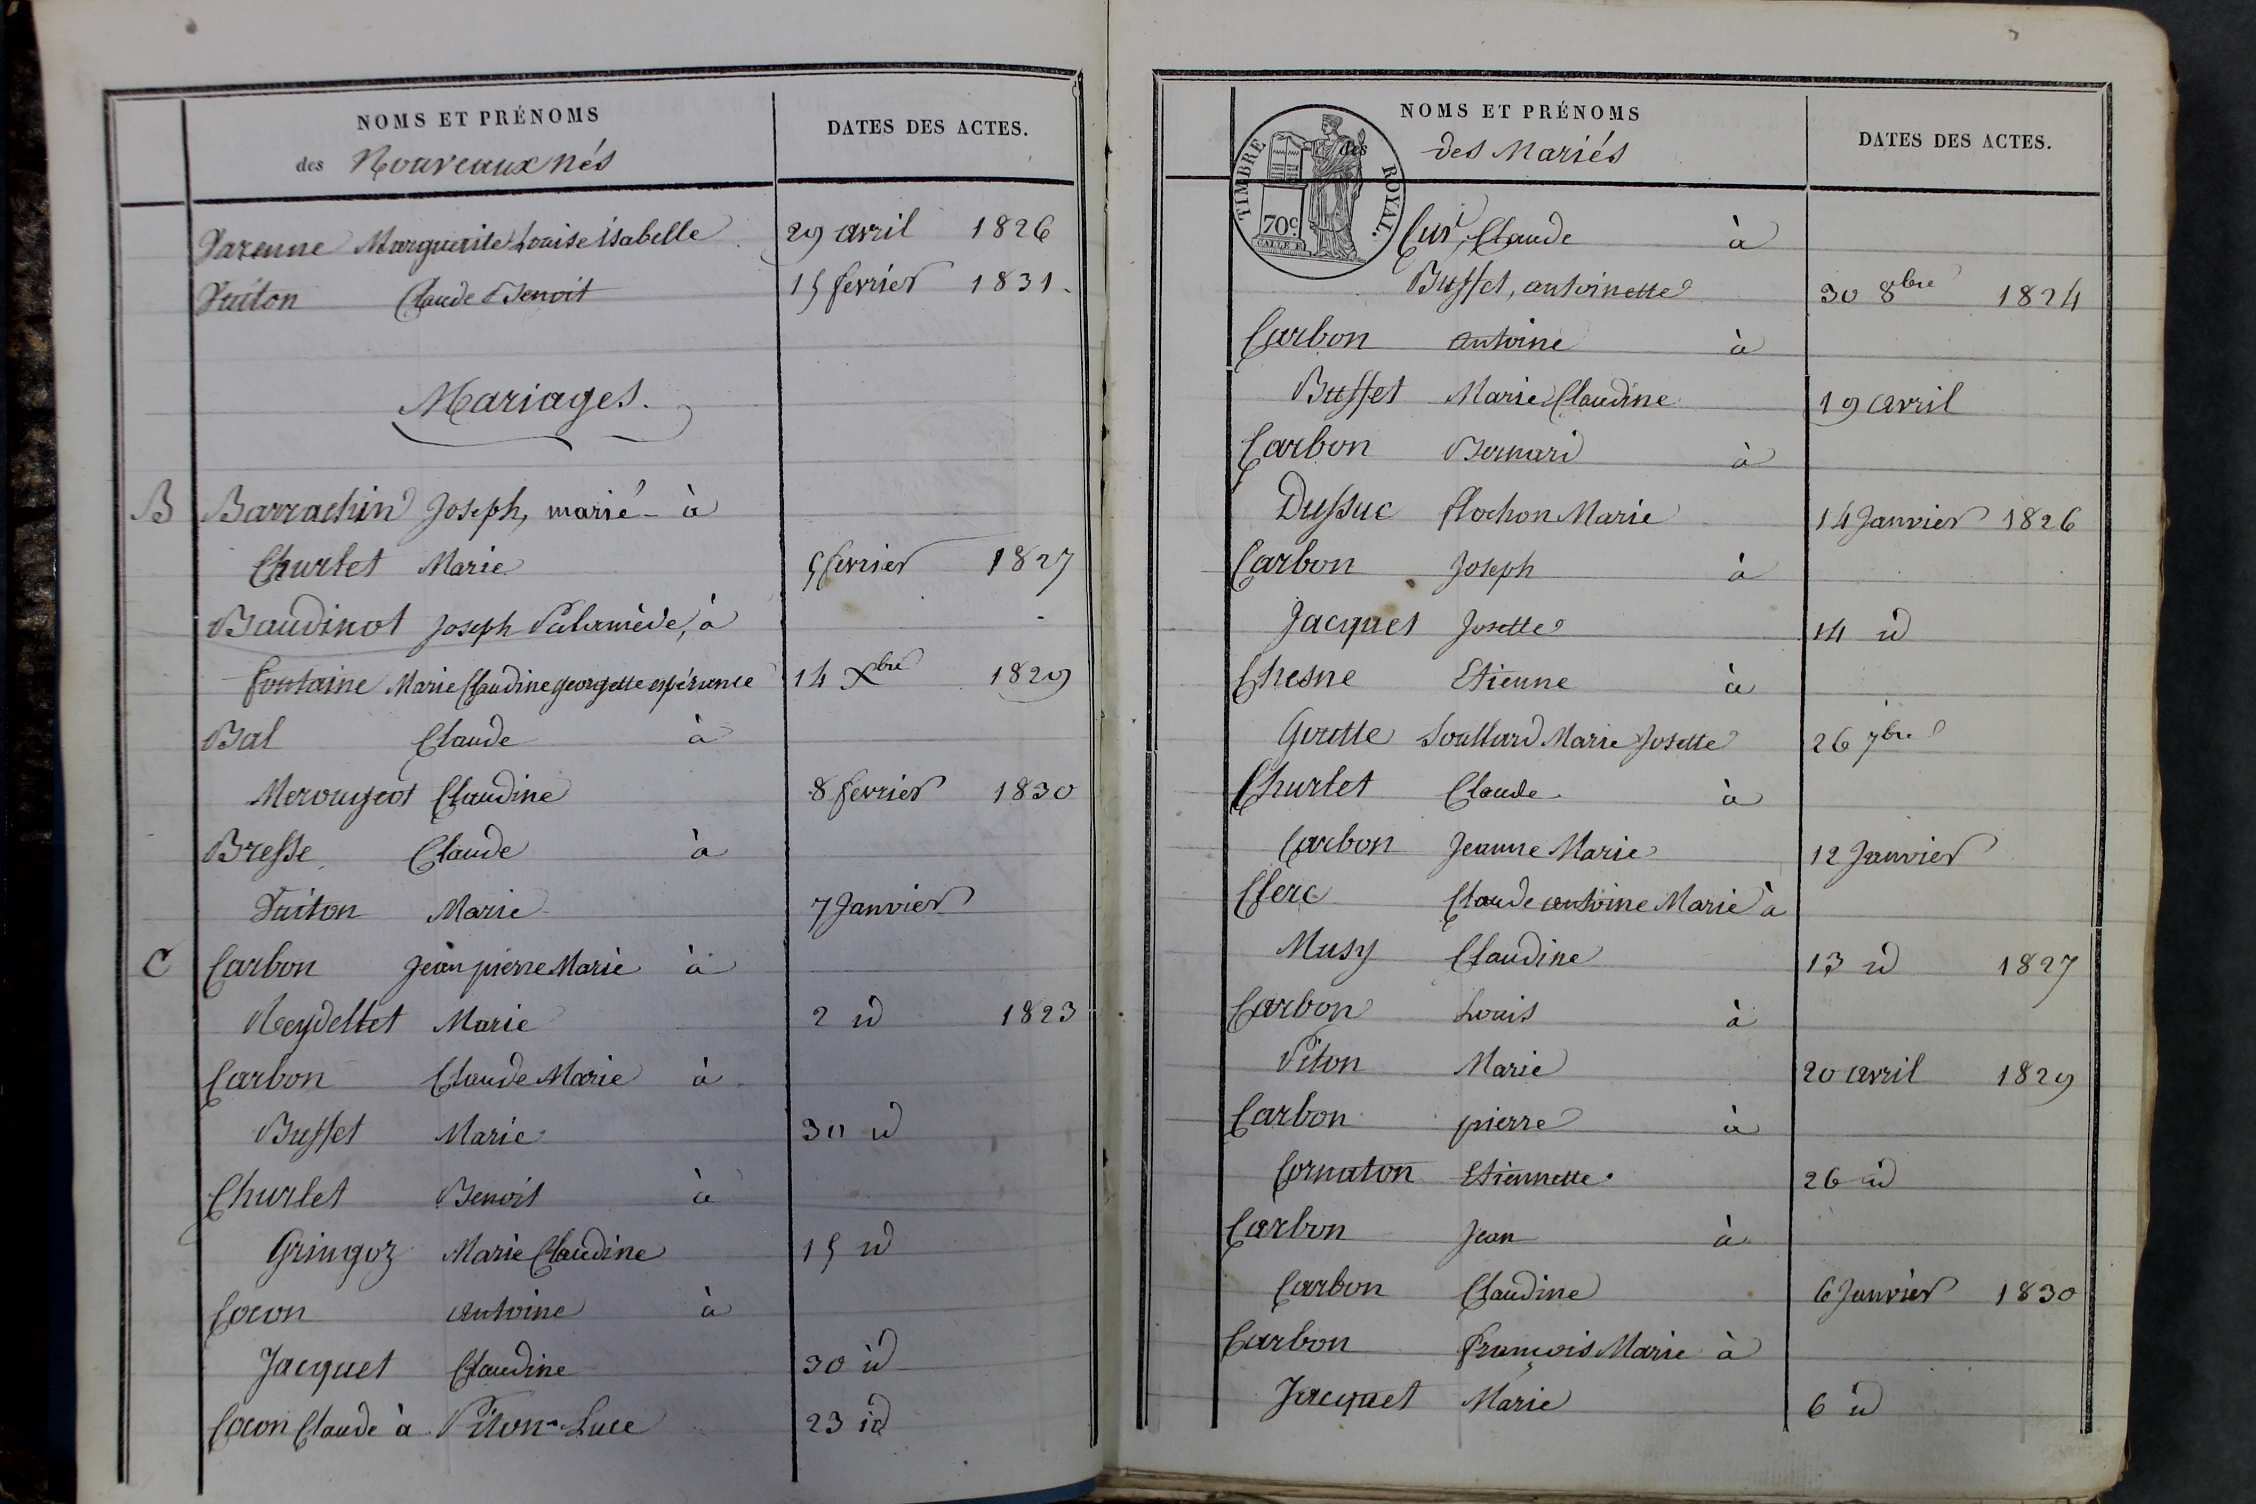 NOMS ET PRÉNOMS
des Nouveaux nés
DATES DES ACTES.
Varenne Marguerite Louise Isabelle 29 avril 1826
Vuiton Claude Benoit 15 fevrier 1831.
Mariages.
B Barrachin Joseph, marié à
Churlet Marie 5 fevrier 1827
Baudinot Joseph Palamède, à
fontaine Marie Claudine georgette espérance 14 Xbre 1829
Bal Claude à
Merougeot Claudine 8 fevrier 1830
Bresse Claude à
Vuiton Marie 7 Janvier
C Carbon Jean pierre Marie à
Reydellet Marie 2 id 1823
Carbon Claude Marie à
Buffet Marie 30 id
Churlet Benoit à
Gringoz Marie Claudine 15 id
Cocon antoine à
Jacquet Claudine 30 id
Cocon Claude à Piton Luce 23 id
NOMS ET PRÉNOMS
des
des Mariés
DATES DES ACTES.
TIMBRE ROYAL.
70c.
Claude à
Buffet, antoinette 30 8bre 1824
Carbon antoine à
Buffet Marie Claudine 19 avril
Carbon Bernard à
Dussuc flochon Marie 14 Janvier 1826
Carbon Joseph à
Jacquet Josette 14 id
Chesne Etienne à
Goutte Soullard Marie Josette 26 7bre
Churlet Claude à
Carbon Jeanne Marie 12 Janvier
Clerc Claude antoine Marie à
Musy Claudine 13 id 1827
Carbon Louis à
Piton Marie 20 avril 1829
Carbon pierre à
Cornaton Etiennette 26 id
Carbon Jean à
Carbon Claudine 6 Janvier 1830
Carbon françois Marie à
Jacquet Marie 6 id